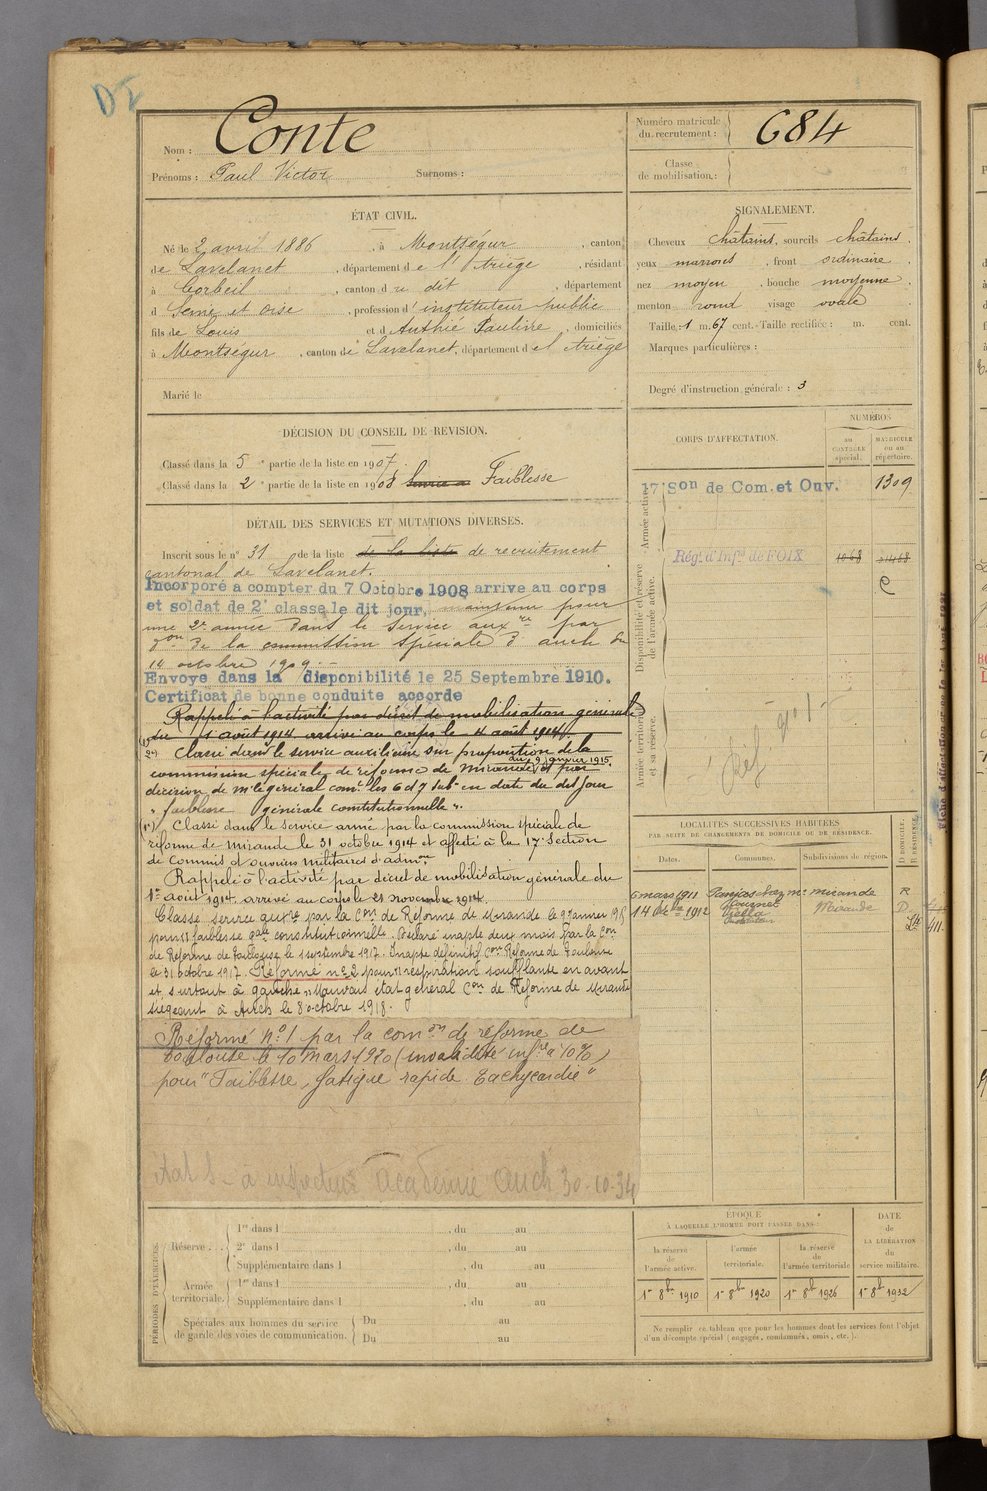 DI
Nom : Conte
Prénoms : Paul Victor Surnoms :
Numéro matricule
du recrutement : 684
Classe
de mobilisation :
ÉTAT CIVIL.
Né le 2 avril 1886, à Montségur, canton
de Lavelanet, département de l'Ariège, résidant
à Corbeil, canton du dit, département
d Seine et Oise, profession d'instituteur public
fils de Louis et d Authié Pauline, domiciliés
à Montségur, canton de Lavelanet, département de l'Ariège
Marié le
SIGNALEMENT.
Cheveux châtains, sourcils châtains,
yeux marrons, front ordinaire,
nez moyen, bouche moyenne,
menton rond visage ovale
Taille : 1 m. 67 cent. Taille rectifiée : m. cent.
Marques particulières :
Degré d'instruction générale : 3
DÉCISION DU CONSEIL DE REVISION.
Classé dans la 5e partie de la liste en 1907.
Classé dans la 2e partie de la liste en 1908 Faiblesse
DÉTAIL DES SERVICES ET MUTATIONS DIVERSES.
Inscrit sous le n° 31 de la liste de la liste de recrutement
cantonal de Lavelanet.
Incorporé a compter du 7 Octobre 1908 arrive au corps
et soldat de 2e classe le dit jour, maintenu pour
une 2e année dans le service auxre par
don de la commission spéciale d'auch du
14 octobre 1909.
Envoye dans la disponibilité le 25 Septembre 1910.
Certificat de bonne conduite accorde
Rappelé à l'activité par décret de mobilisation générale
du 1 août 1914 arrivé au corps le 4 août 1914.
(2°) Classé dans le service auxiliaire sur proposition de la
commission spéciale de réforme de Mirande du 9 janvier 1915. et par
décision de Mr le général comt les 6 et 7 subon en date du dit jour
"faiblesse générale constitutionnelle".
(1°) Classé dans le service armé par la commission spéciale de
réforme de Mirande le 31 octobre 1914 et affecté à la 17e Section
de Commis et ouvriers militaires d'admon
Rappelé à l'activité par décret de mobilisation générale du
1er août 1914 arrivé au corps le 21 novembre 1914.
Classé service auxre par la Con de Réforme de Mirande le 9 Janvier 1915
pour "faiblesse gale constitutionnelle". Déclaré inapte deux mois par la Con
de Réforme de Toulouse le 1 septembre 1917. Inapte définitif Con Réforme de Toulouse
le 31 octobre 1917. Réformé n° 2 pour "respiration soufflante en avant
et surtout à gauche" Mauvais état général Con de Réforme de Mirande
siégeant à Auch le 8 octobre 1918.
Réformé N° 1 par la comon de réforme de
Toulouse le 10 mars 1920 (invalidité infre à 10%)
pour "Faiblesse, fatigue rapide. Tachycardie"
à inspecteur académie Auch 30-10-34
CORPS D'AFFECTATION.
NUMÉROS
au
CONTROLE
spécial.
MATRICULE
ou au
répertoire.
Armée active.
17e Son de Com. et Ouv. 1309
Disponibilité et réserve
de l'armée active.
Régt d'Infie de FOIX 1068
Armée territoriale
et sa réserve.
Réf. n° 1
LOCALITÉS SUCCESSIVES HABITÉES
PAR SUITE DE CHANGEMENTS DE DOMICILE OU DE RÉSIDENCE.
Dates. Communes. Subdivisions de région. D DOMICILE. R RÉSIDENCE.
6 mars 1911 Panjas chez Mr Mirande R
14 1912 Viella Mirande D
PÉRIODES D'EXERCICES.
Réserve ... 1re dans l , du au
2e dans l , du au
Supplémentaire dans l , du au
Armée territoriale. 1re dans l , du au
Supplémentaire dans l , du au
Spéciales aux hommes du service
de garde des voies de communication. Du au
Du au
ÉPOQUE
À LAQUELLE L'HOMME DOIT PASSER DANS :
la réserve
de
l'armée active.
l'armée
territoriale.
la réserve
de
l'armée territoriale
DATE
de
LA LIBÉRATION
du
service militaire.
1er 8bre 1910 1er 8bre 1920 1er 8bre 1926 1er 8bre 1932
Ne remplir ce tableau que pour les hommes dont les services font l'objet
d'un décompte spécial (engagés, condamnés, omis, etc.).